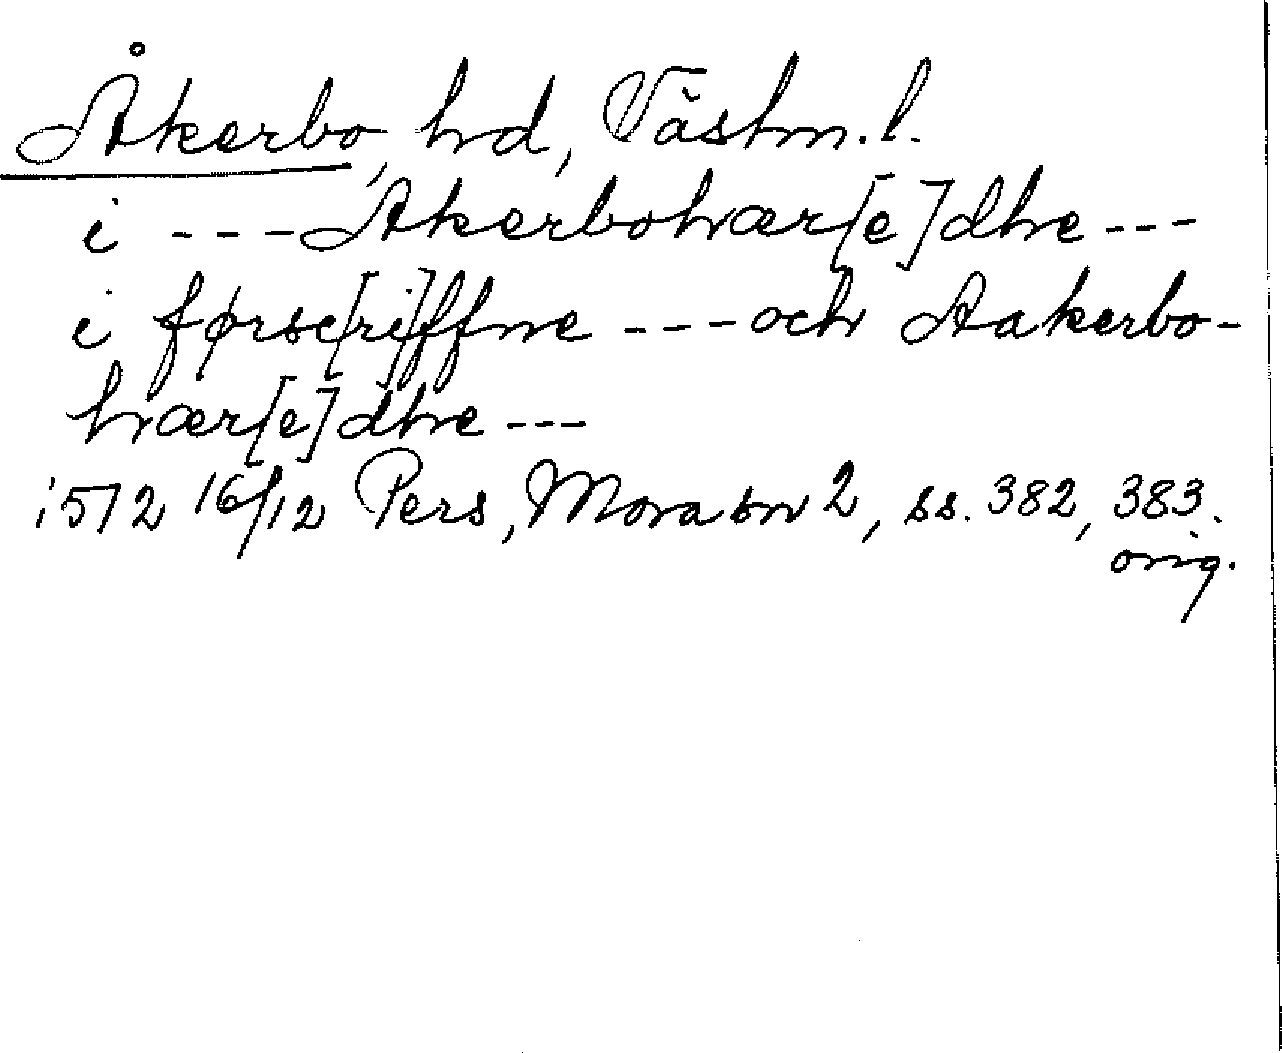 Åkerbo, hd, Västm. l.
i --- Akerbohær[e]dhe ---
i førsc[ri]ffne --- och Aakerbo-
hær[e]dhe ---
1512 16/12 Pers, Mora br 2, ss. 382, 383.
orig.